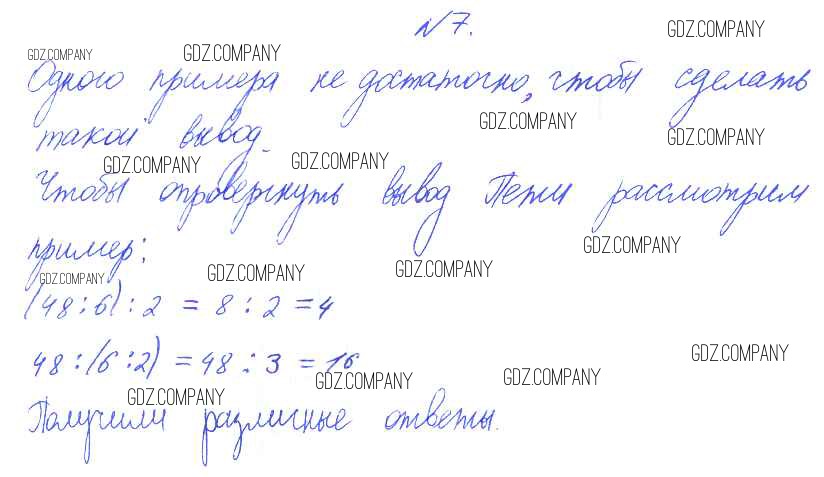 №7.
GDZ.COMPANY
GDZ.COMPANY GDZ.COMPANY
Одного примера не достаточно, чтобы сделать
GDZ.COMPANY
такой вывод.
GDZ.COMPANY
GDZ.COMPANY GDZ.COMPANY
Чтобы опровергнуть вывод Пети рассмотрим
пример:
GDZ.COMPANY
GDZ.COMPANY GDZ.COMPANY GDZ.COMPANY
(48:6):2 = 8:2 = 4
48:(6:2) = 48:3 = 16
GDZ.COMPANY
GDZ.COMPANY GDZ.COMPANY GDZ.COMPANY
Получили различные ответы.